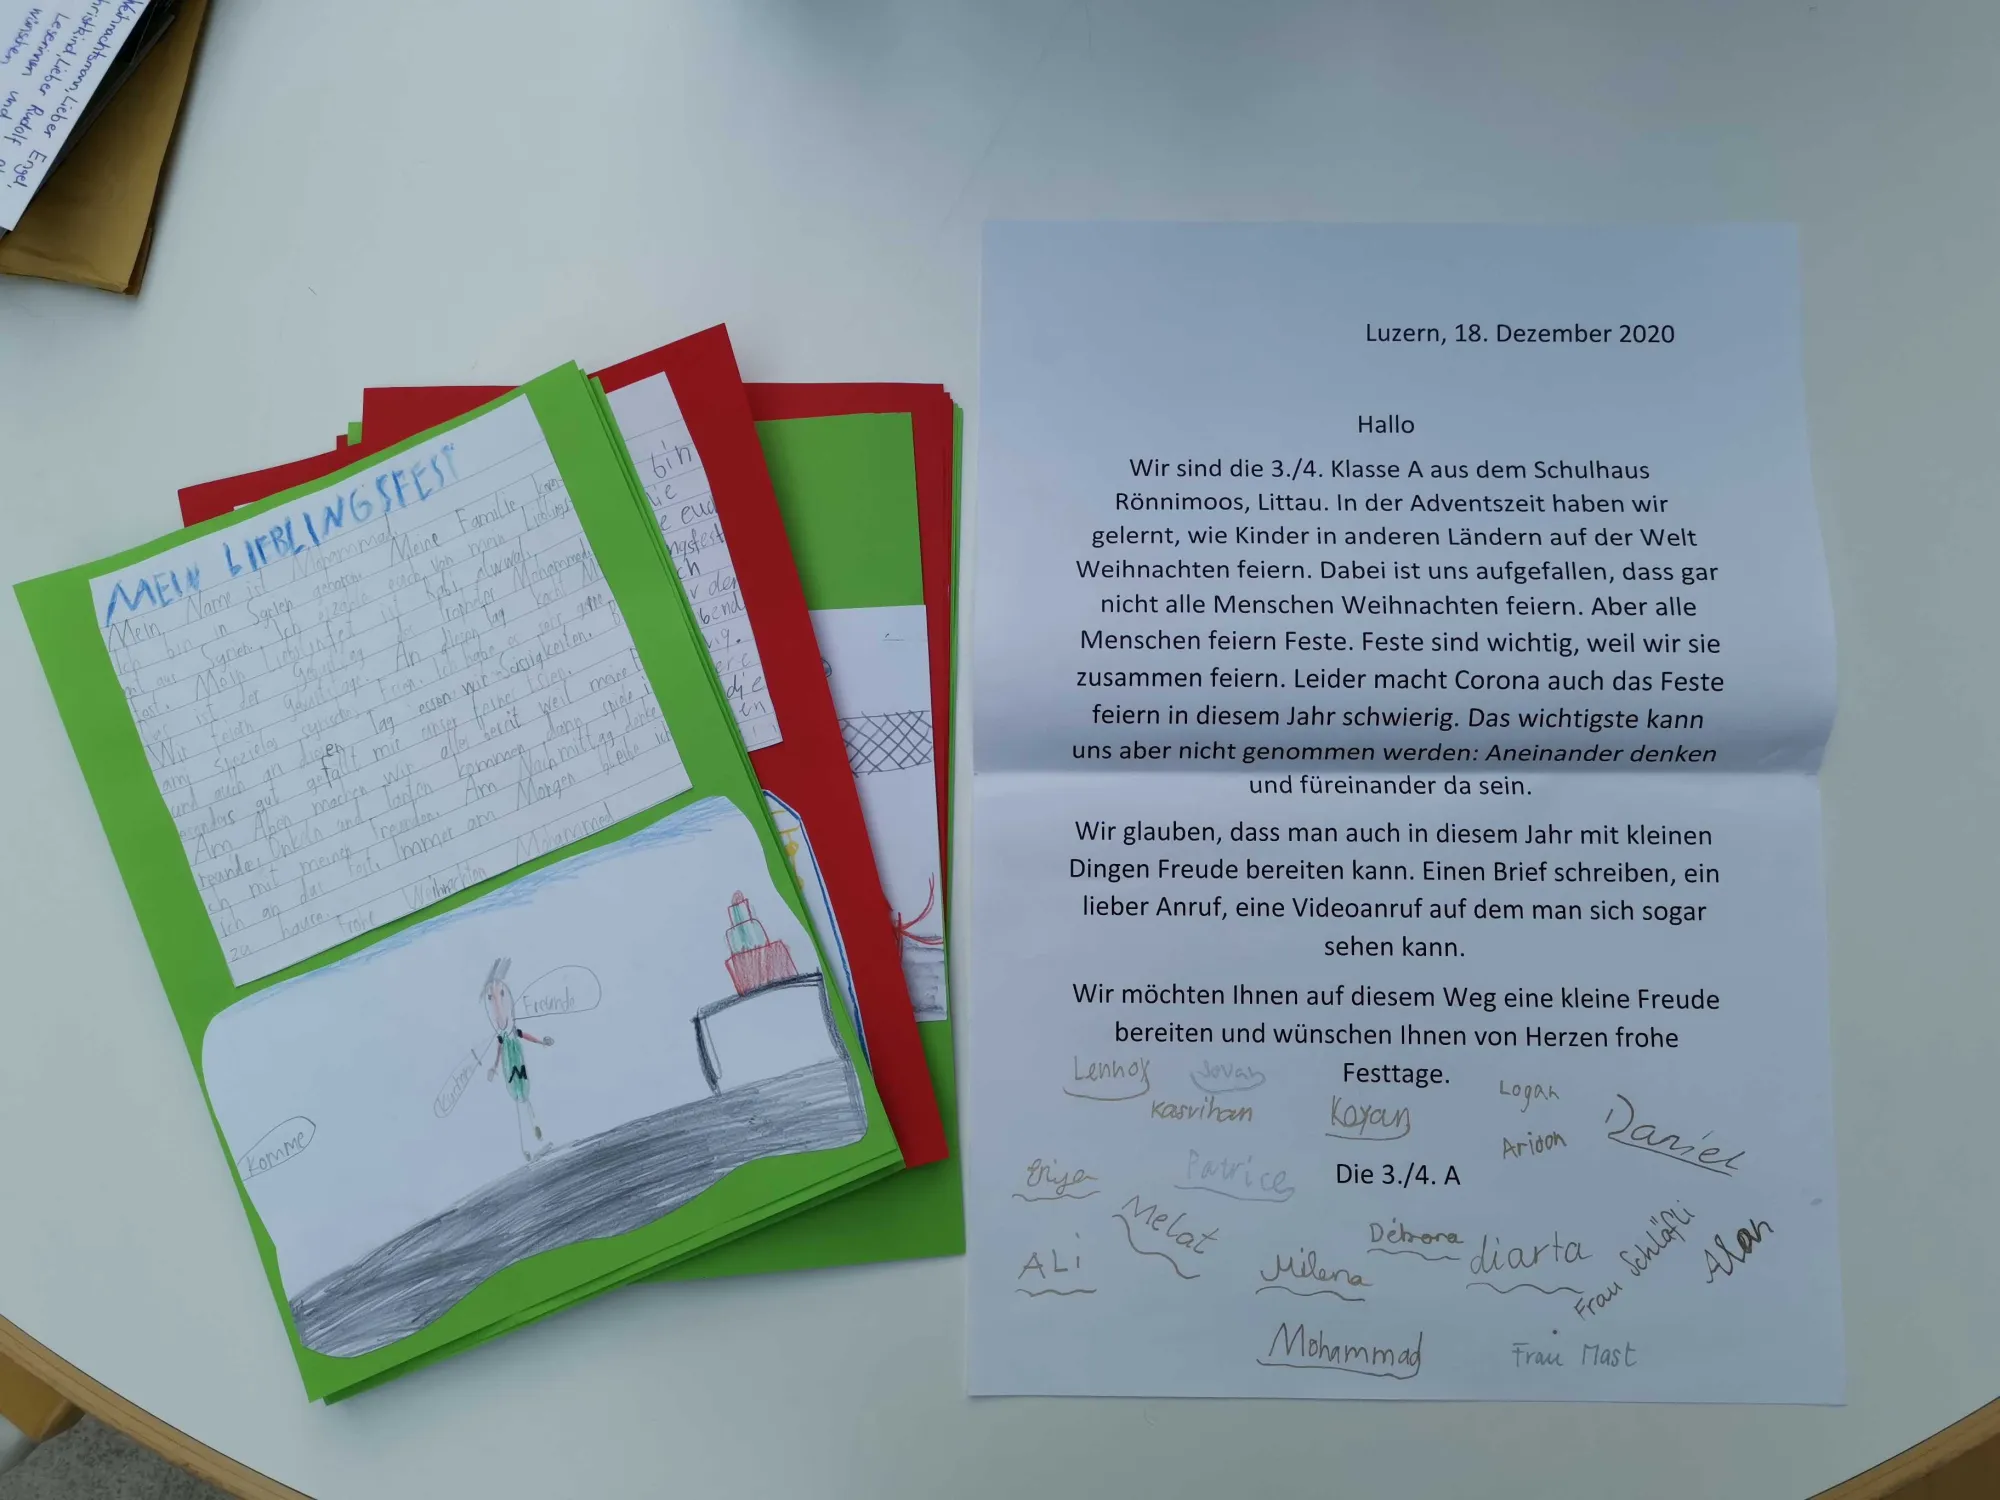 Weihnachtsmann, Lieber Engel,
Christkind, Lieber Rudolf
Leserinnen und
wünschen
MEIN LIEBLINGSFEST
Mein Name ist Mohammad.
Ich bin in Syrien geboren. Meine Familie
aus Syrien. Ich erzähle euch von mein Lieblings
fest. Mein Lieblingsfest ist
ist der Geburtstag des Propheten Mohammad.
Wir feiern An diesen Tag kocht
Ich habe es sehr gerne
und auch an diesen Tag essen wir Süssigkeiten.
gut gefällt mir unser feines Essen.
Am Aben machen wir alles bereit weil meine
Onkeln und Tanten kommen dann spiele
ich mit meinen Freunden. Am Nachmittag denke
ich an das Fest. Immer am Morgen bleibe ich
zu hause. Frohe Weihnachten Mohammad
Freunde
Komme
bin
ie
e euch
ngsfest
ch
r den
bend
ig.
ere
die
en
Luzern, 18. Dezember 2020
Hallo
Wir sind die 3./4. Klasse A aus dem Schulhaus
Rönnimoos, Littau. In der Adventszeit haben wir
gelernt, wie Kinder in anderen Ländern auf der Welt
Weihnachten feiern. Dabei ist uns aufgefallen, dass gar
nicht alle Menschen Weihnachten feiern. Aber alle
Menschen feiern Feste. Feste sind wichtig, weil wir sie
zusammen feiern. Leider macht Corona auch das Feste
feiern in diesem Jahr schwierig. Das wichtigste kann
uns aber nicht genommen werden: Aneinander denken
und füreinander da sein.
Wir glauben, dass man auch in diesem Jahr mit kleinen
Dingen Freude bereiten kann. Einen Brief schreiben, ein
lieber Anruf, eine Videoanruf auf dem man sich sogar
sehen kann.
Wir möchten Ihnen auf diesem Weg eine kleine Freude
bereiten und wünschen Ihnen von Herzen frohe
Festtage.
Lennox Jovan Logan
Kasvihan Koyan Daniel
Aridon
Patrice Die 3./4. A
Melat Débora diarta Frau Schläfli Alan
ALi Milena
Mohammad Frau Mast